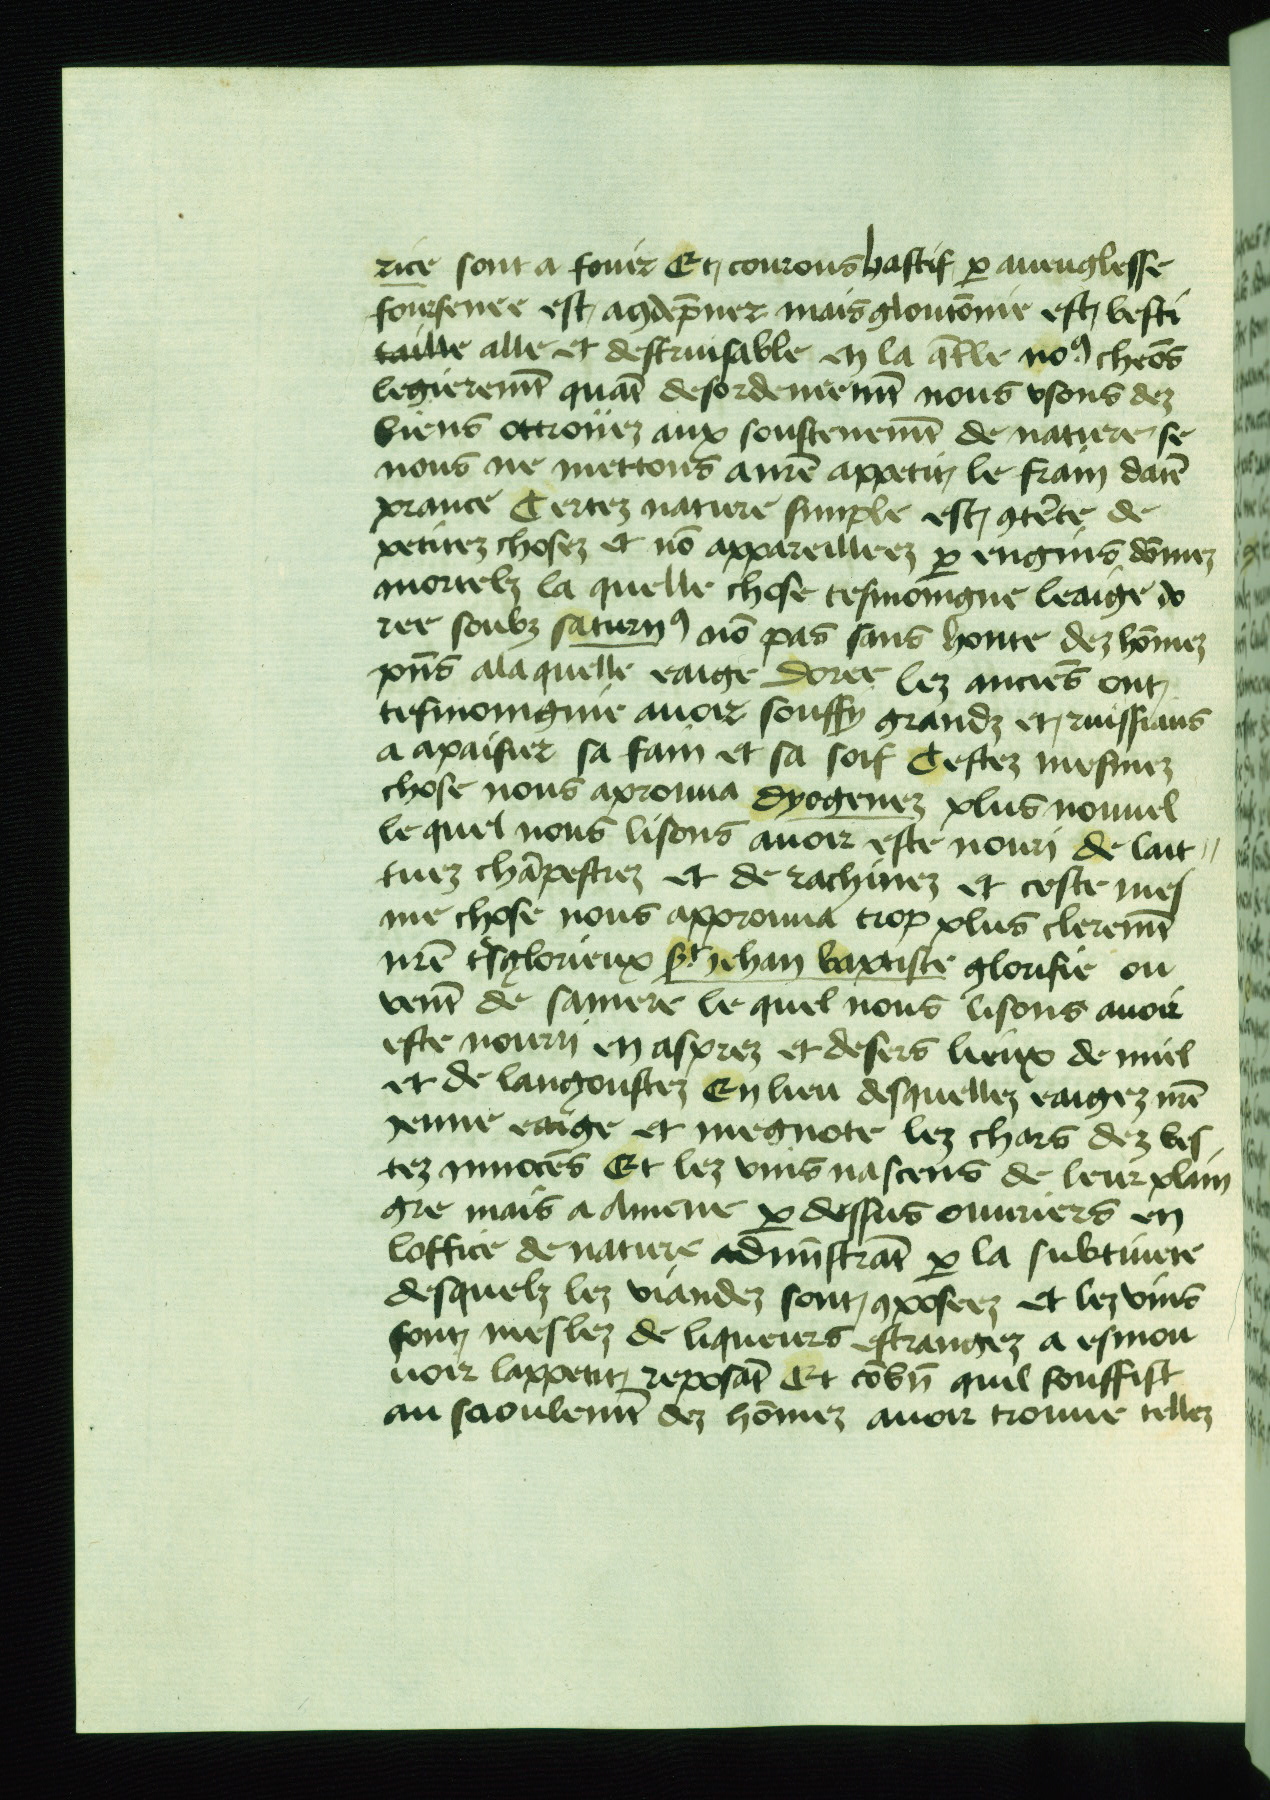 rice sont a fouir Et courous hastif ꝑ aueuglesse
foursenee est a ꝯdēpner mais gloutōnie est besti
taille alle et destruisable en la q̄lle noꝰ cheōs
legieremēt quāt desordeneemēt nous vsons dez
biens ottroiiez aux soustenemēt de nature se
nous ne mettons a nrē appetit le frain datē
prance Certez nature simple est ꝯtēte de
petitez chosez et nō appareilleez ꝑ engins dōmez
mortelz la quelle chose tesmoingne leaige do
ree soubz saturnꝰ nō pas sans honte dez hōmez
pn̄s ala quelle eaige doree lez anciēs ont
tesmoingnie auoir souffy grandz et ruissiaus
a apaisier sa fain et sa soif Cestez mesmez
chose nous aprouua dyogenez plus nouuel
le quel nous lisons auoir este nouri de lait
tuez chāpestrez et de rachinez et ceste mes
me chose nous approuua trop plus cleremēt
nrē tſglorieux st Jehan baptiste glorifie ou
venīt de samere le quel nous lisons auoir
este nourri en asprez et desers lieux de miel
et de langoustez En lieu desquellez eaigez nrē
ieune eaige et megnote lez chars dez bes
tez innocēs Et lez vins nascens de leur plain
gre mais a amene ꝑ dessus ouuriers en
loffice de nature admīstrāt ꝑ la subtiuete
desquelz lez viandez sont ꝯposeez et lez vins
sont meslez de liqueurs estrangez a esmou
uoir lappetit reposāt Et cōbn̄ quil souffist
au saoulemēt dez hōmez auoir trouue tellez